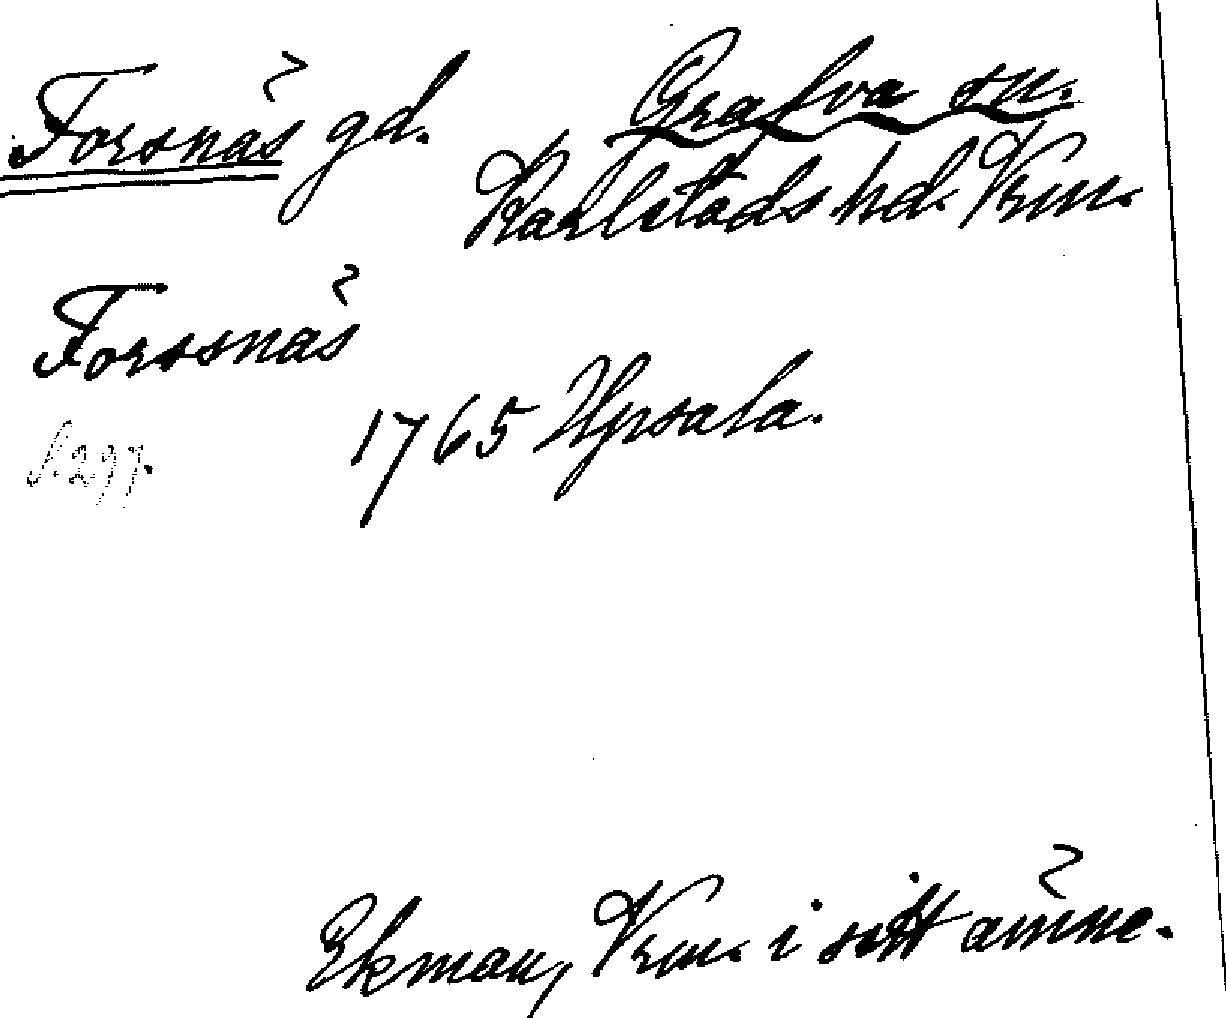 Forsnäs gd. Grafva sn.
Karlstads hd. Vrm.
Forssnäs
1765 Upsala.
S. 297.
Ekman, Vrm. i sitt ämne.